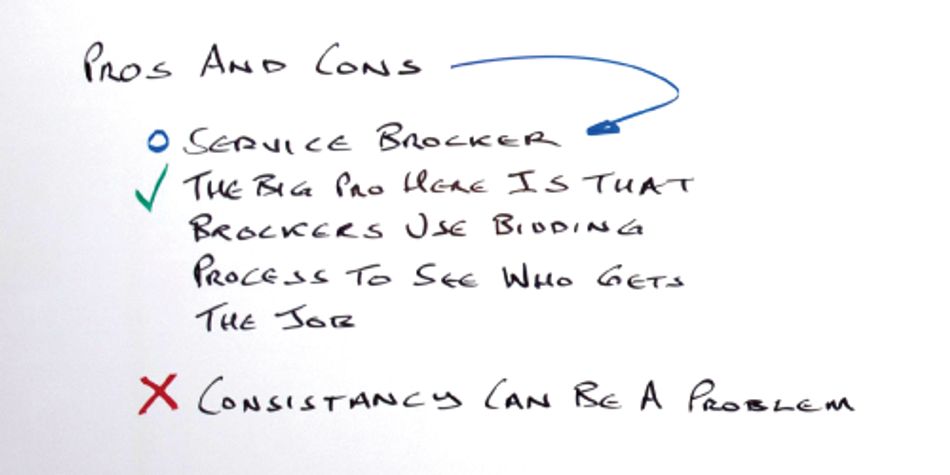 PROS AND CONS
SERVICE BROCKER
THE BIG PRO HERE IS THAT
BROCKERS USE BIDDING
PROCESS TO SEE WHO GETS
THE JOB
CONSISTANCY CAN BE A PROBLEM